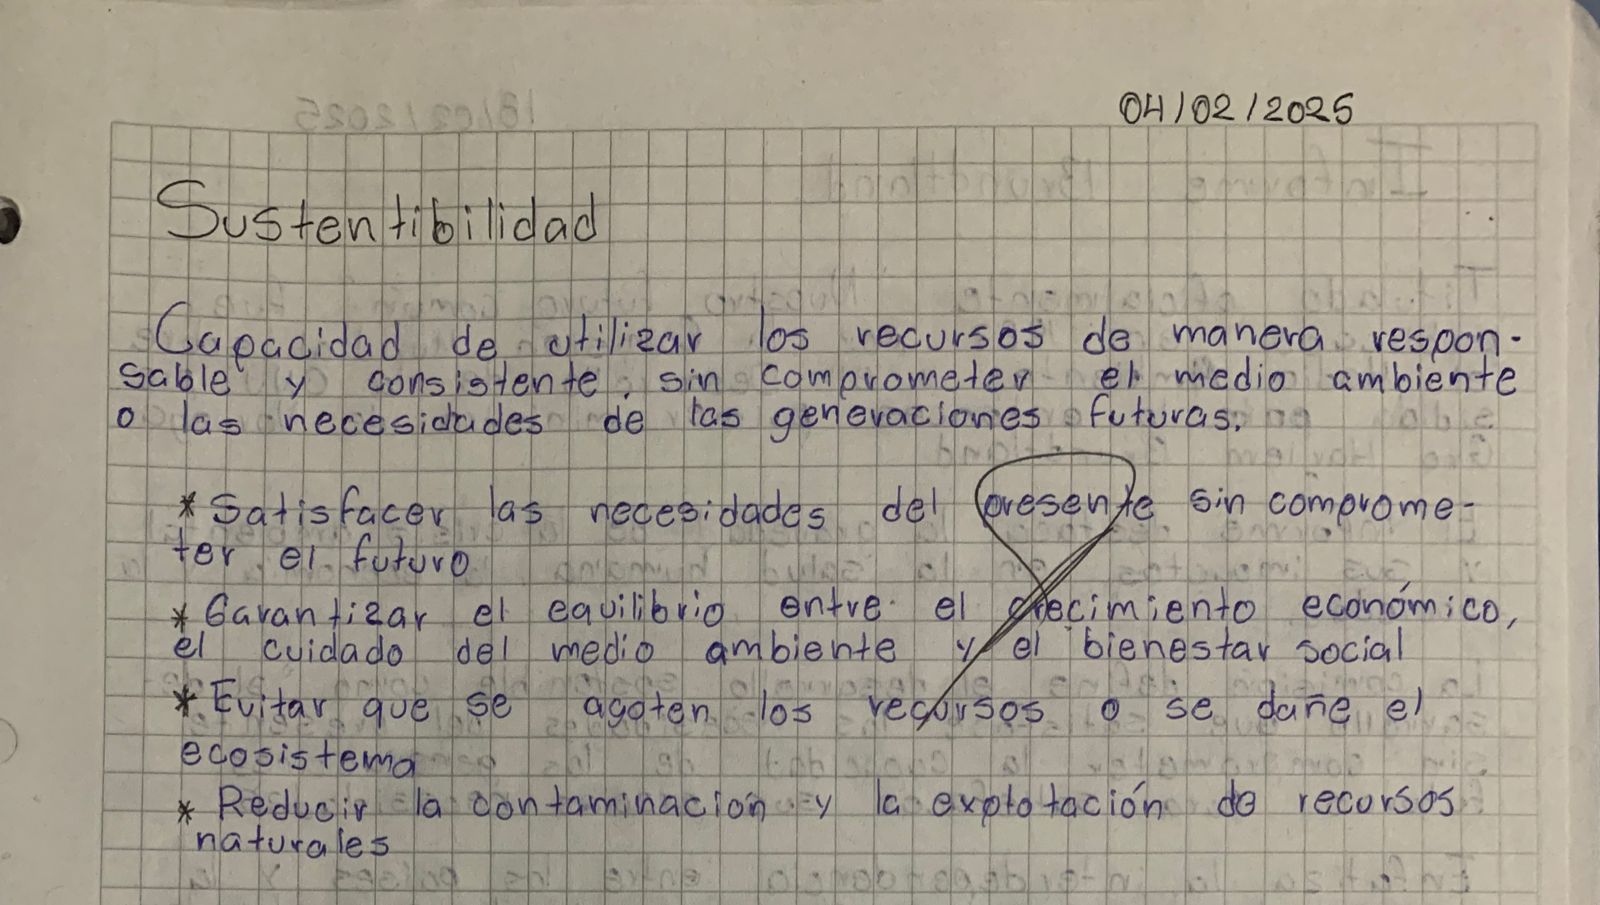 04/02/2025
Sustentibilidad
Capacidad de utilizar los recursos de manera respon-
sable y consistente, sin comprometer el medio ambiente
o las necesidades de las generaciones futuras.
* Satisfacer las necesidades del presente sin comprome-
ter el futuro
* Garantizar el equilibrio entre el crecimiento económico,
el cuidado del medio ambiente y el bienestar social
* Evitar que se agoten los recursos o se dañe el
ecosistema
* Reducir la contaminación y la explotación de recursos
naturales